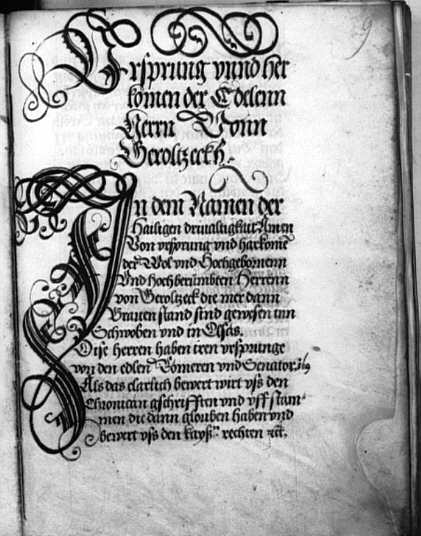 9
Ursprung vnnd her
komen der Edelenn
Herrn Vonn
Geroltzeckh.
In dem Namen der
Hailigen driualtigkait Amen
Von vrsprung vnd harkome
der Wol vnd Hochgebornenn
Vnd Hochberümbten Herrenn
von Geroltzeck die mer dann
Grauen stand sind gewesen inn
Schwoben vnd in Elsas.
Dise herren haben iren vrsprunge
von den edlen Römeren vnd Senator
Als das clarlich bewert wirt vss den
Chronican gschrifften vnd vff stam
men die dann glouben haben vnd
bewert vss den kays. rechten